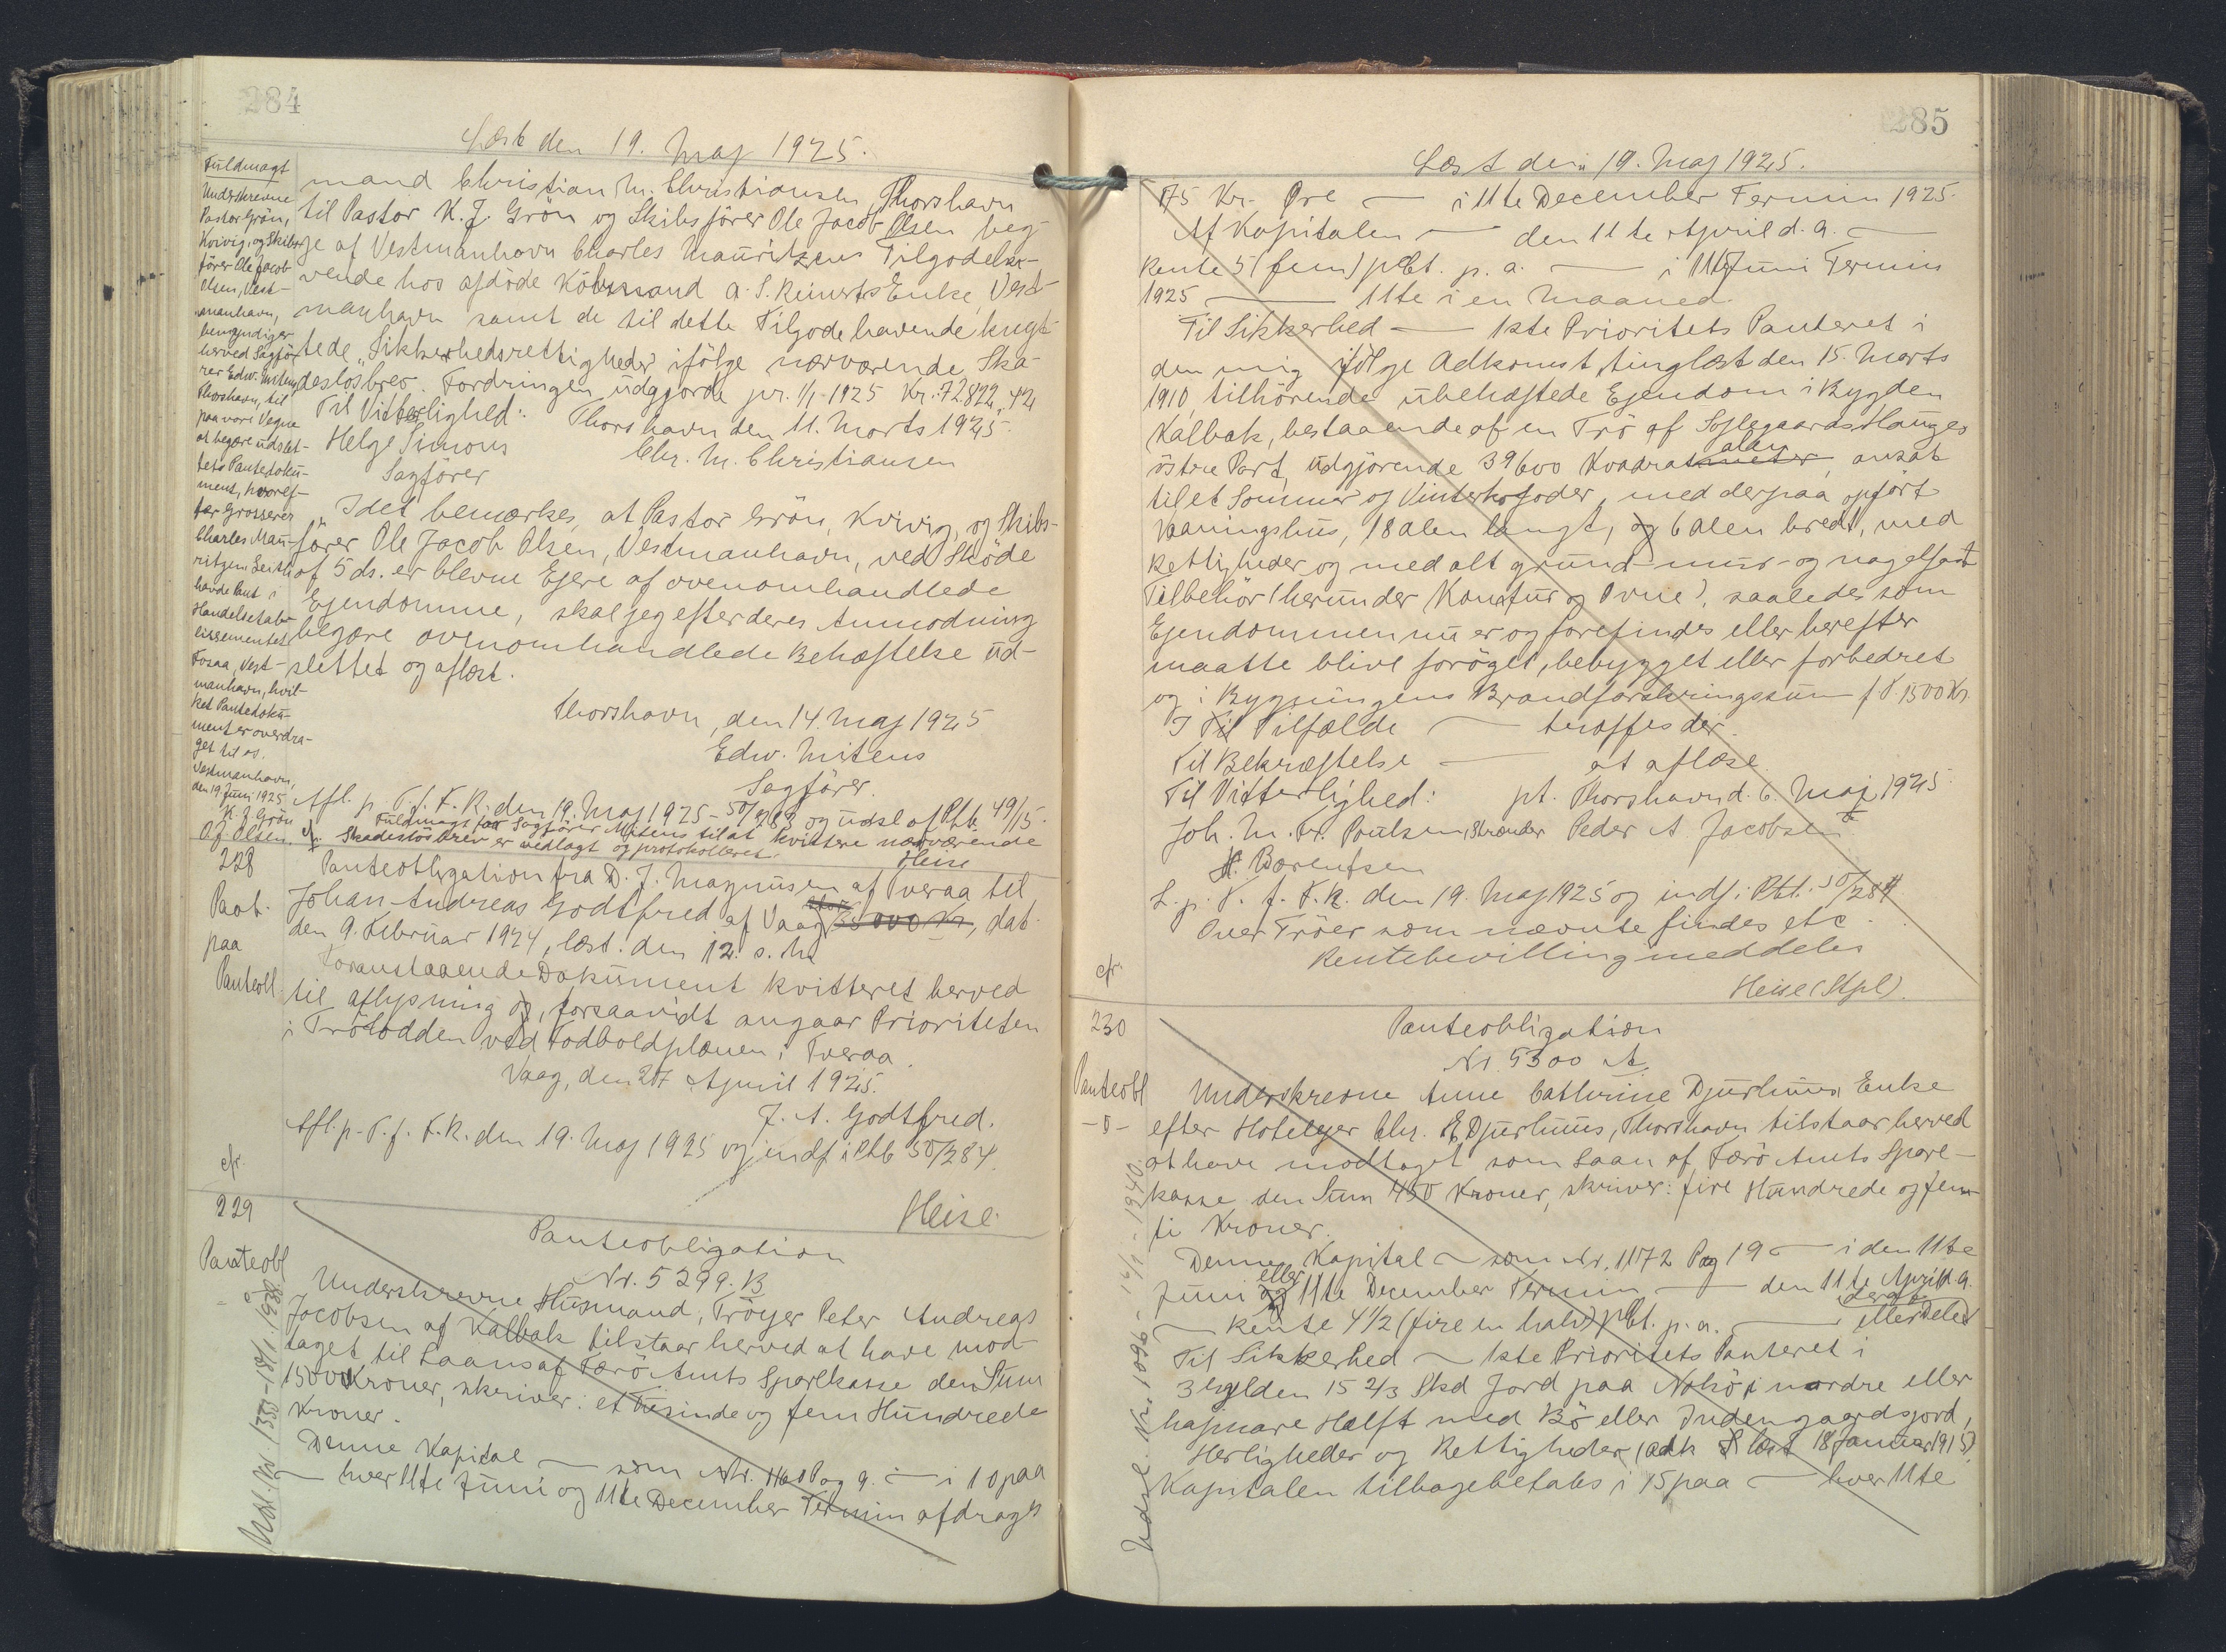 284
Læst den 19. Maj 1925.
Fuldmagt
Underskrevne
Pastor Grön,
Kvivig, og Skibs-
förer Ole Jacob
Olsen, Vest-
manhavn,
bemyndiger
herved Sagfö-
rer Edw. Mitens
Thorshavn, til
paa vore Vegne
at begære udslet-
tet Pantedoku-
ment, hvoref-
ter Grosserer
Charles Mau-
ritzen Leith
havde Pant i
Handelsetab-
lissementet
Fosaa, Vest-
manhavn, hvil-
ket Pantedoku-
ment er overdra-
get til os.
Vestmanhavn,
den 19. Juni 1925
K. J. Grön
O. J. Olsen.
mand Christian M. Christiansen Thorshavn
til Pastor K. J. Grön og Skibsförer Ole Jacob Olsen beg-
ge af Vestmanhavn Charles Mauritzens Tilgodeha-
vende hos afdöde Köbmand A. S. Reinerts Enke, Vest-
manhavn samt de til dette Tilgodehavende knyt-
tede "Sikkerhedsrettigheder" ifölge nærværende Ska-
deslösbrev. Fordringen udgjorde pr. 1/1-1925 Kr. 72.822,42
Til Vitterlighed: Thorshavn den 11. Marts 1925.
Helge Simons Chr. M. Christiansen
Sagförer
Idet bemærkes, at Pastor Grön, Kvivig, og Skibs-
förer Ole Jacob Olsen, Vestmanhavn, ved Sköde
af 5 ds. er blevne Ejere af ovenomhandlede
Ejendomme, skal jeg efter deres Anmodning
begære ovenomhandlede Behæftelse ud-
slettet og aflæst.
Thorshavn, den 14 Maj 1925
Edw. Mitens
Sagförer.
Afl. p. T. f. F. R. den 19. Maj 1925 - 50/283 og udsl af Ptb. 49/15.
cfr. Fuldmagt for Sagförer Mitens til at kvittere nærværende
Skadeslösbrev er vedlagt og protokolleret.
Heise
228
Paat.
paa
Panteobl.
Panteobligation fra D. J. Magnusen af Tveraa til
Johan Andreas Godtfred af Vaag 35000 Kr, dat.
den 9. Februar 1924, læst. den 12. s. M.
Foranstaaende Dokument kvitteret herved
til aflysning og, forsaavidt angaar Prioriteten
i Trölodden ved Fodboldplænen i Tveraa.
Vaag, den 27 April 1925.
J. A. Godtfred.
Afl. p. T. f. F. R. den 19. Maj 1925 og indf i Ptb 50/284.
cfr.
Heise.
229
Panteobl
Panteobligation
Nr. 5299. B
Underskrevne Husmand, Tröejer Peter Andreas
Jacobsen af Kalbak tilstaar herved at have mod-
taget til Laans af Færö Amts Sparekasse den Sum
1500 Kroner, skriver: et Tusinde og fem Hundrede
Kroner.
Denne Kapital — som Nr. 1160 Pag 9. — i 10 paa
— hver 11te Juni og 11te December Termin afdrages
Udsl. Nr. 1350 - 18/1. 1938.
285
Læst den 19. Maj 1925.
75 Kr. Øre — i 11te December Termin 1925.
Af Kapitalen — den 11te April d. A. —
Rente 5 (fem) pCt. p. a. — i 11te Juni Termin
1925 — 11te i en Maaned
Til Sikkerhed — 1ste Prioritets Panteret i
den mig ifölge Adkomst, tinglæst den 15. Marts
1910 tilhörende ubehæftede Ejendom i Bygden
Kalbak, bestaaende af en Trö af Sylegaards Hauges
östre Part, udgjörende 39600 Kvadratmeter alen, ansat
til et Sommer og Vinterkofoder, med derpaa opfört
Vaaningshus, 18 alen langt, og 6 alen bredt, med
Rettigheder og med alt grund- mur- og nagelfast
Tilbehör (herunder Komfur og Ovne), saaledes som
Ejendommen nu er og forefindes eller herefter
maatte blive foröget, bebygget eller forbedret
og i Bygningens Brandforsikringssum f. T. 1500 Kr.
I Til Tilfælde — træffes der.
Til Bekræftelse — at aflæse.
Til Vitterlighed: pt. Thorshavn d. 6. Maj 1925
Joh. M. Fr. Poulsen, Strænder Peder A Jacobsen
H. Borentsen
L. p. T. f. F. R. den 19. Maj 1925 og indf i Ptb. 50/284.
Over Tröer som nævnte findes etc.
Rentebevilling meddeles
cfr.
Heise (Stpl).
230
Panteobl
- 0 -
Panteobligation
Nr. 5300 A.
Underskrevne Anne Cathrine Djurhuus Enke
efter Hotelejer Chr. E Djurhuus, Thorshavn tilstaar herved
at have modtaget som Laan af Færö Amts Spare-
kasse den Sum 450 Kroner, skriver: fire Hundrede og fem-
ti Kroner.
Denne Kapital — som Nr. 1172 Pag 19 — i den 11te
Juni og eller 11te December Termin — den 11te April d. A.
— Rente 4 1/2 (fire en halv) pCt. p. a. — eller Deles
Til Sikkerhed — 1ste Prioritets Panteret i
3 Gylden 15 2/3 Skd Jord paa Nolsö i nordre eller
hajmare Halft med Bö eller Indengaardsjord,
Herligheder og Rettigheder (adk læst 18 Januar 1915)
Kapitalen tilbagebetales i 15 paa — hver 11te
Udsl. Nr. 1096 - 12/1. 1940.